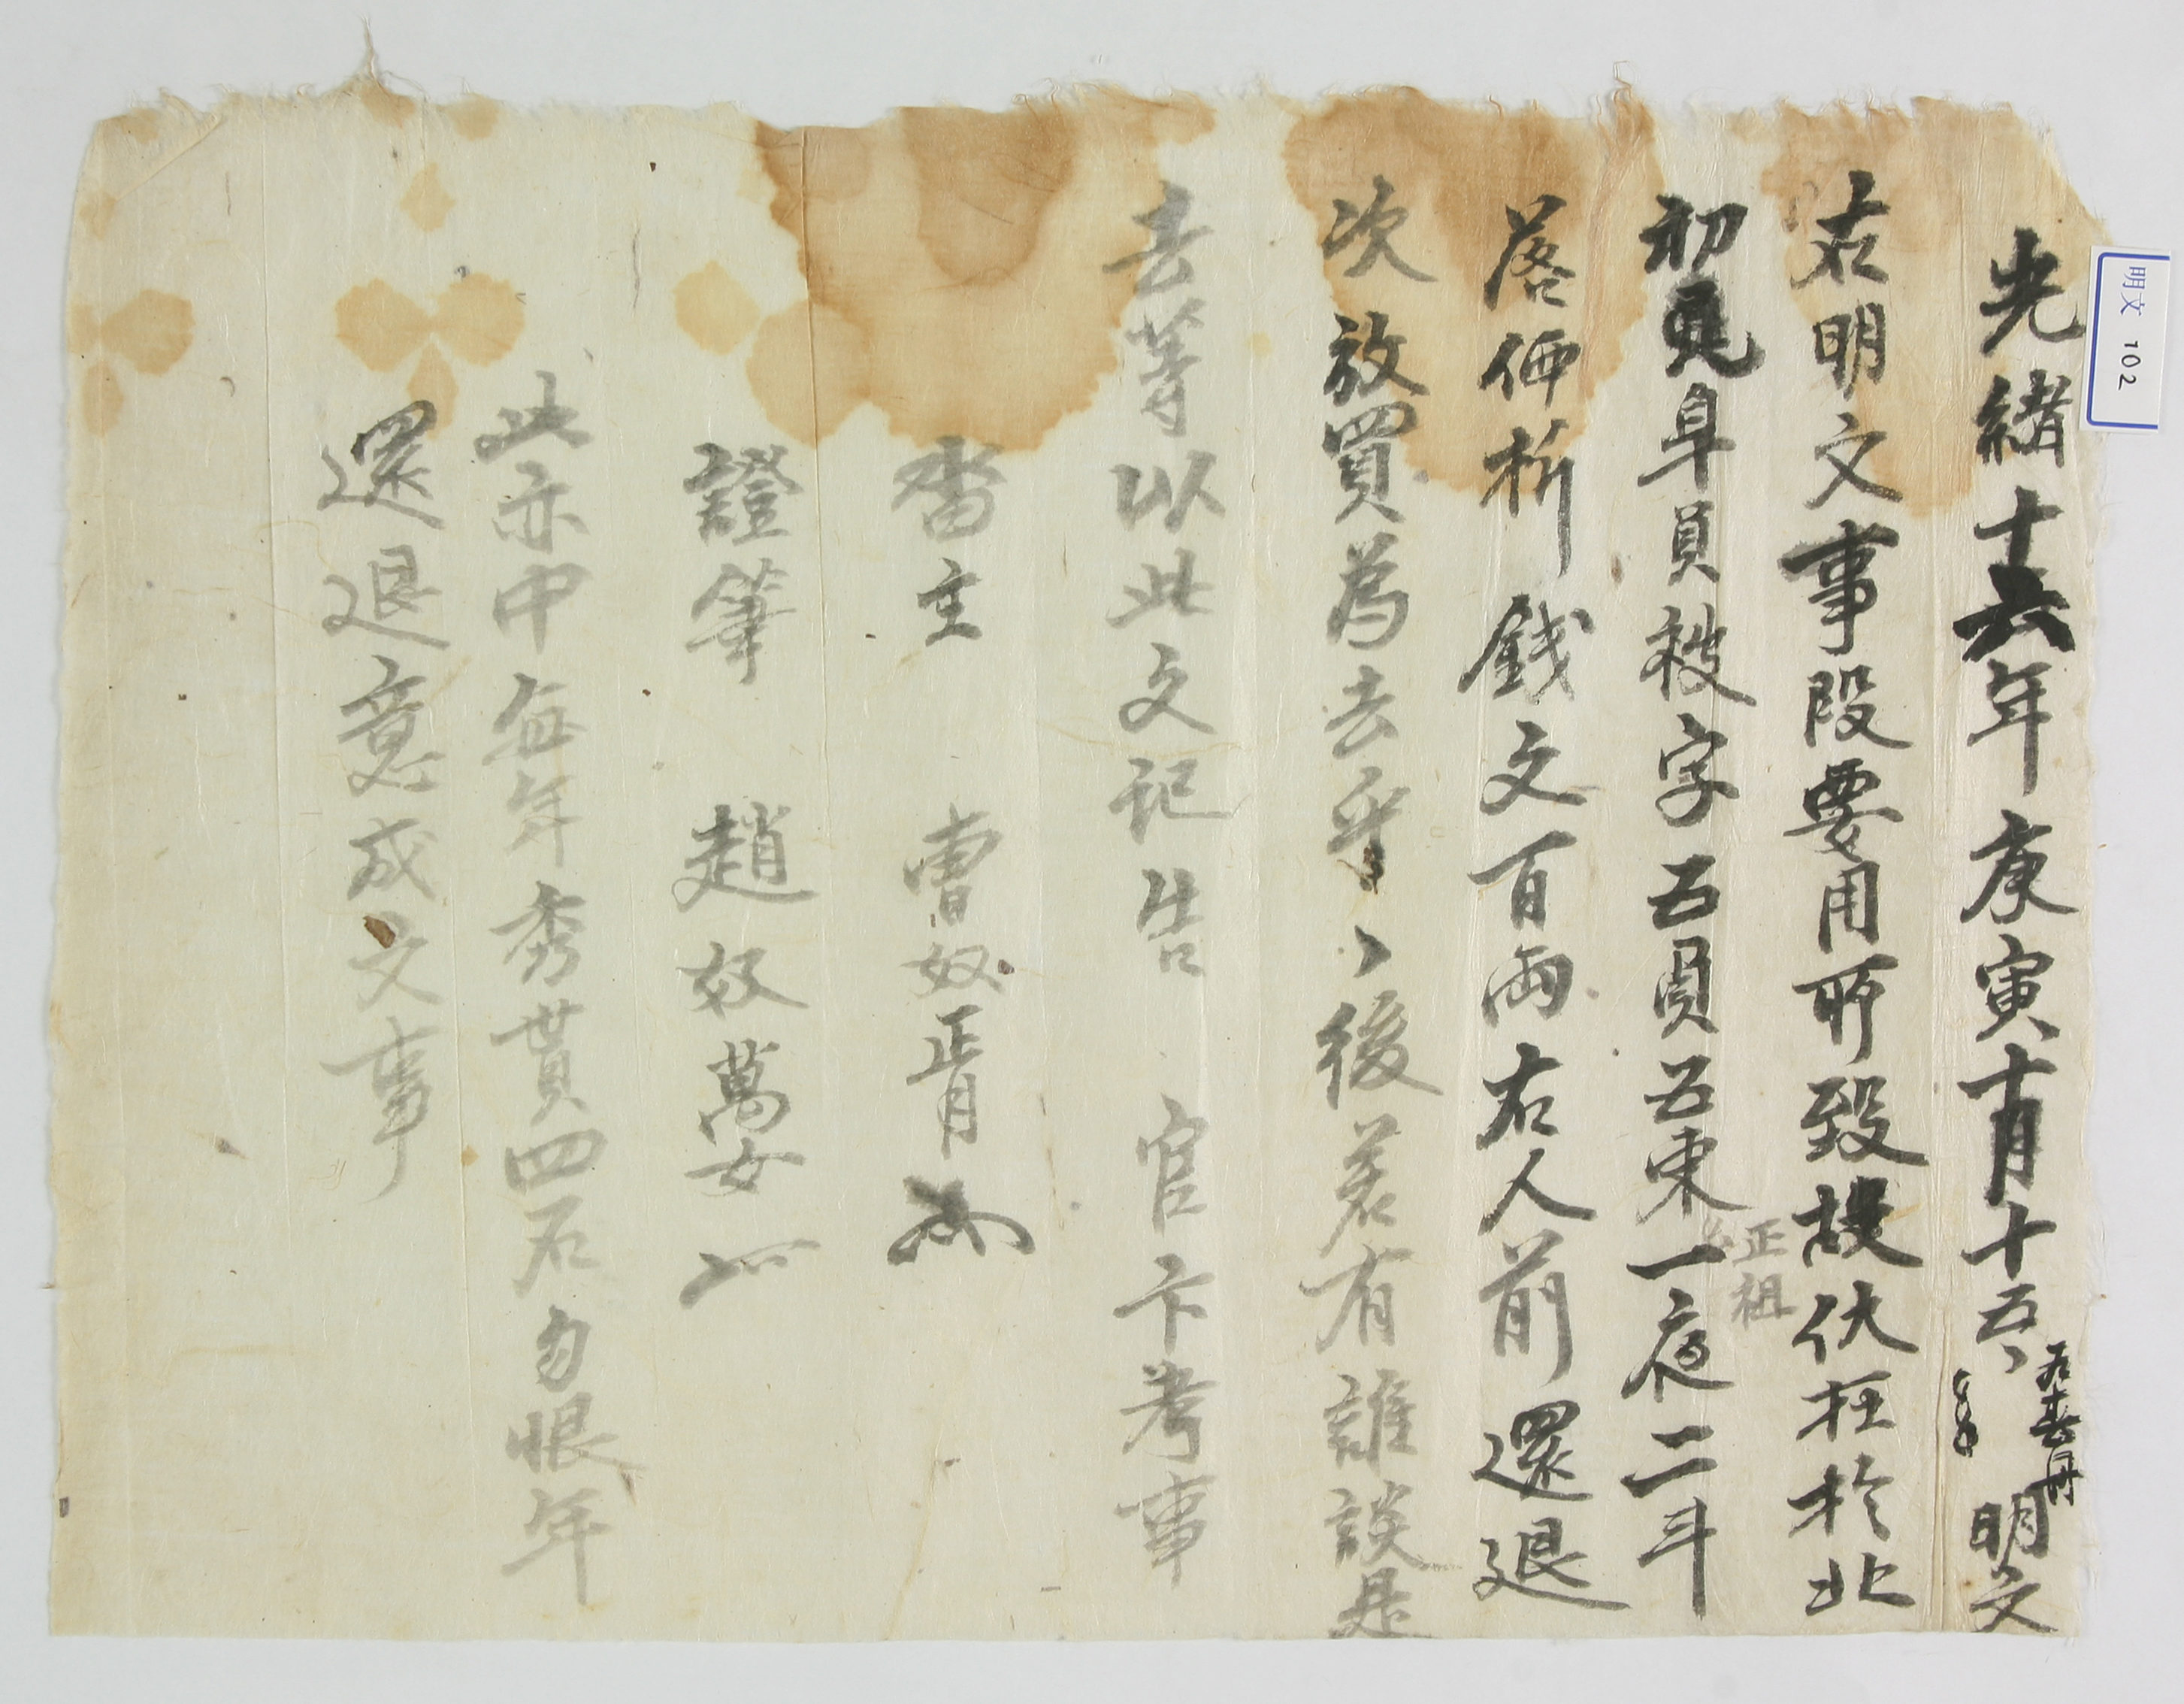 光緖十六年庚寅十月十五、 明文
右明文事段要用所致故伏在於北
初員皐員被字五員五束一夜二斗
正租
落価折錢文百兩右人前還退
次放買爲去乎、後若有誰談是
去等以此文記告 官卞考事
畓主 曺奴正月
證筆 趙奴萬女
此亦中每年秀貰四石勿恨年
還退意成文事
明文 102